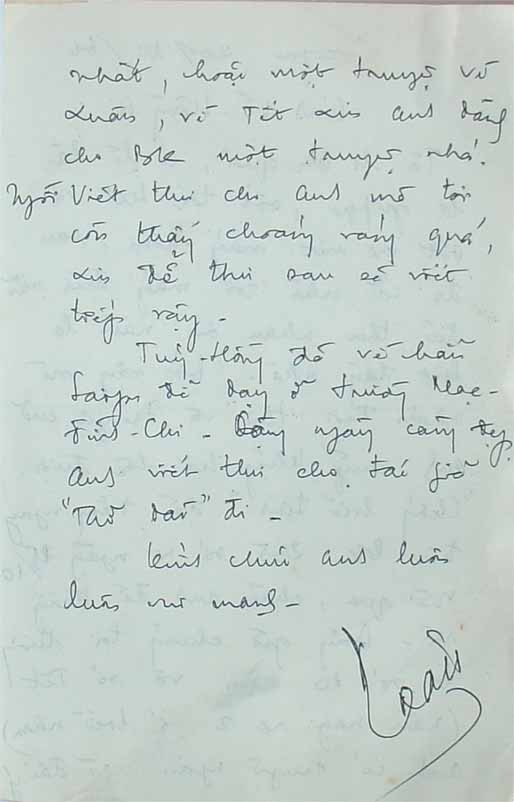 nhất, hoặc một truyện về
Xuân, về Tết xin anh dành
cho BK một truyện nhé.
Ngồi Viết thư cho anh mà tôi
còn thấy choáng váng quá,
xin để thư sau sẽ viết
tiếp vậy -
Túy-Hồng đã về hẳn
Saigon để dạy ở trường Mạc-
Đĩnh-Chi - ngày càng đẹp
anh viết thư cho tác giả
"Thở dài" đi -
Kính chúc anh luôn
luôn vui mạnh -